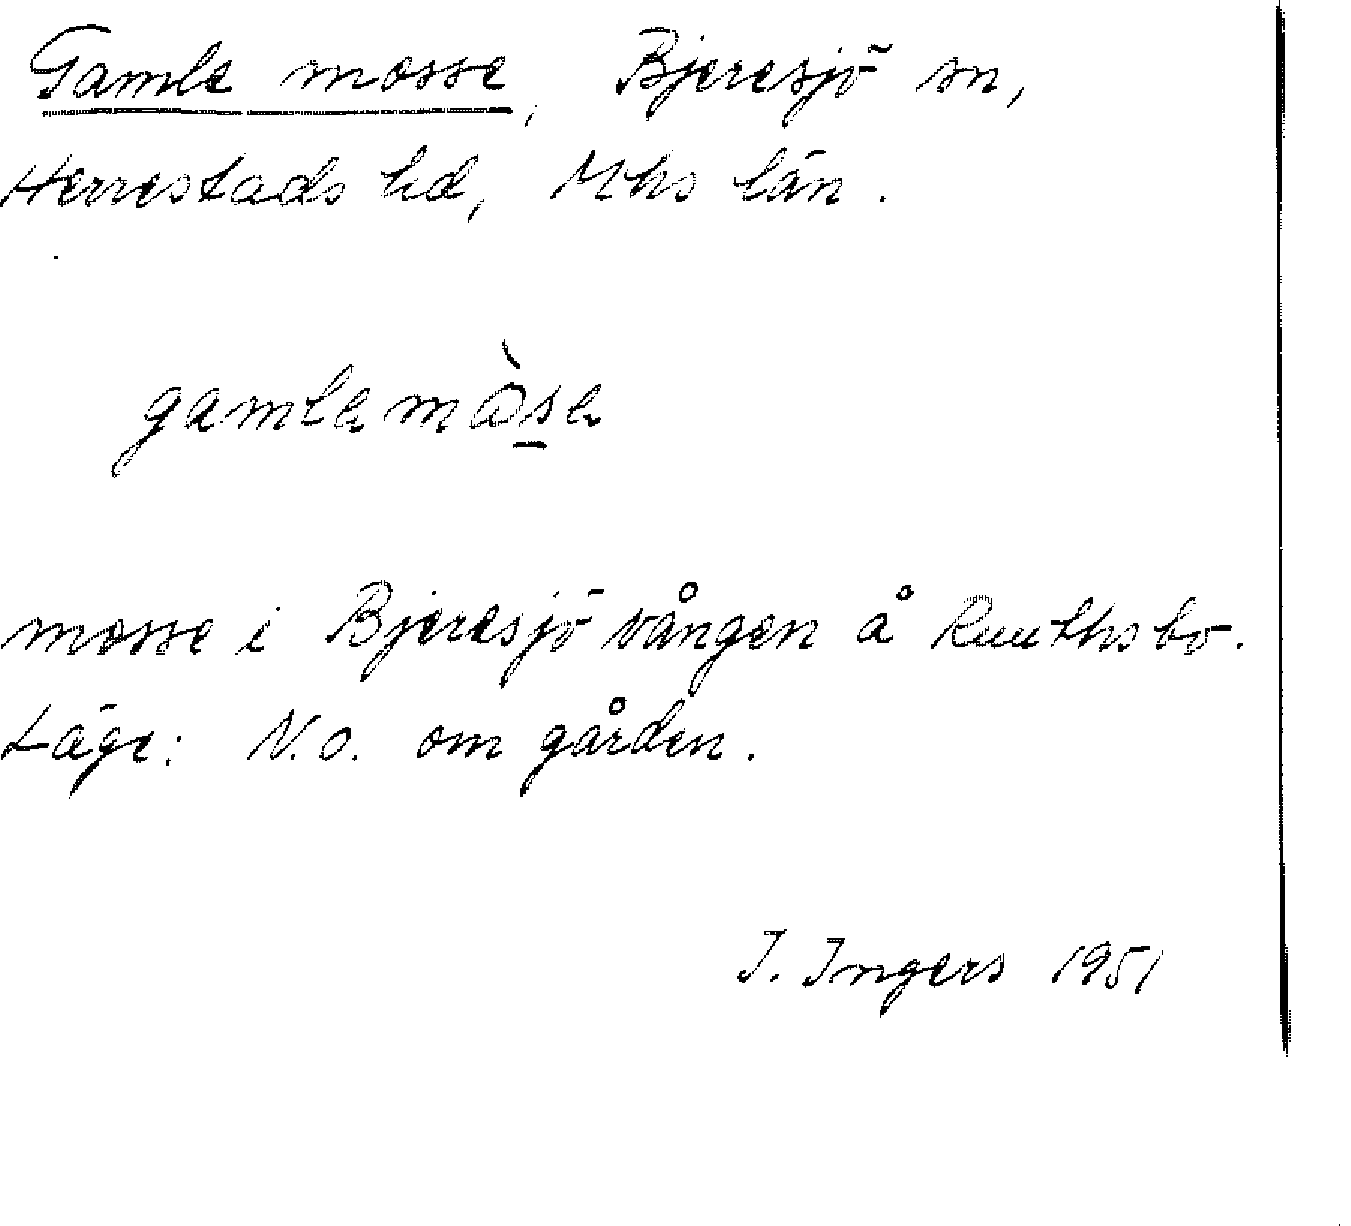 Gamle mosse, Bjeresjö sn,
Herrestads hd, Mhs län.
mosse i Bjeresjö vången å Ruuthsbo.
Läge: N.O. om gården.
I. Ingers 1951